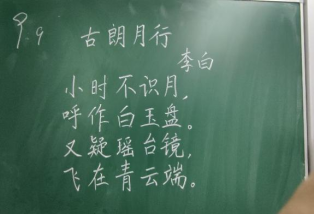 9.9
古朗月行
李白
小时不识月,
呼作白玉盘。
又疑瑶台镜,
飞在青云端。